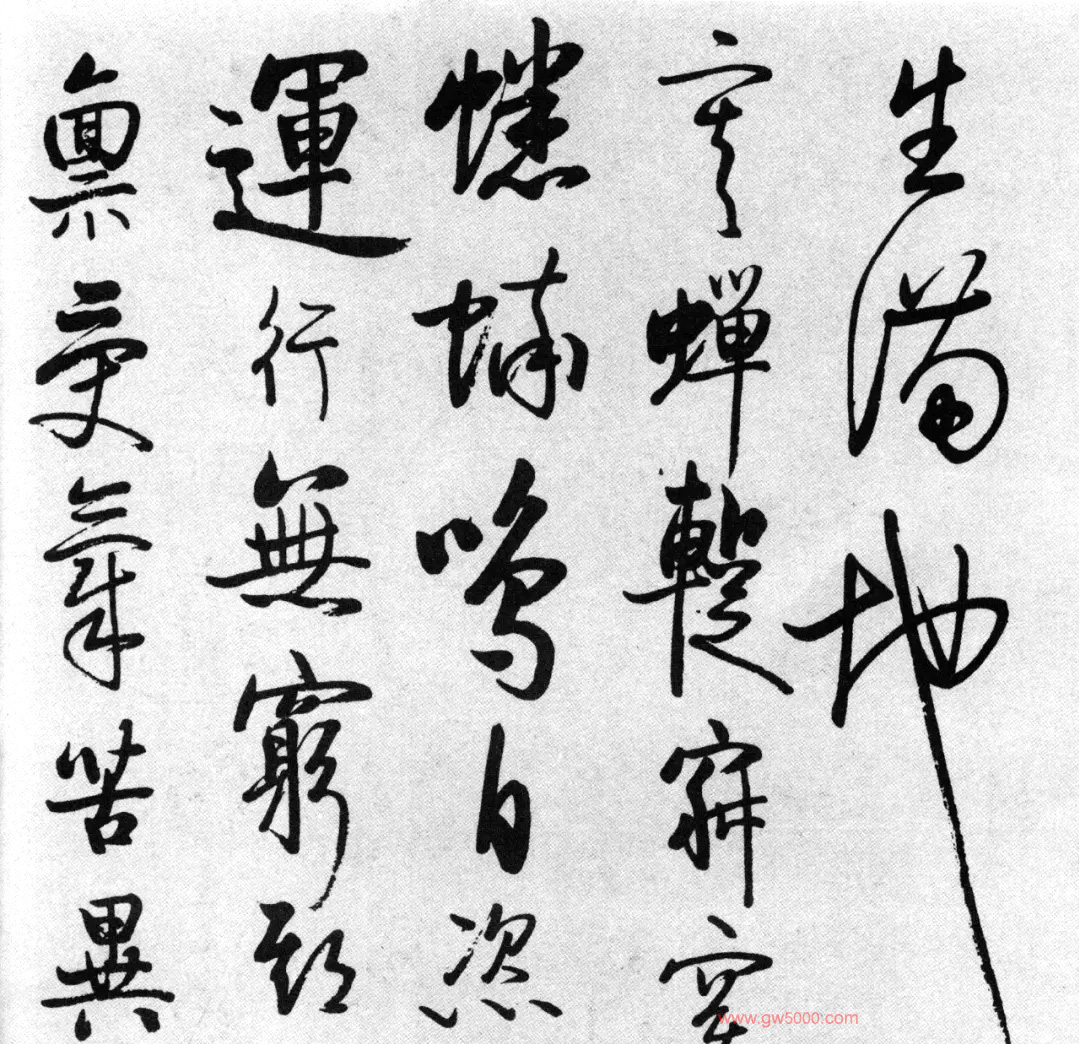 生滿地
寒蟬暫寂寞
蟋蟀鳴自恣
運行無窮期
稟受氣苦異
www.gw5000.com